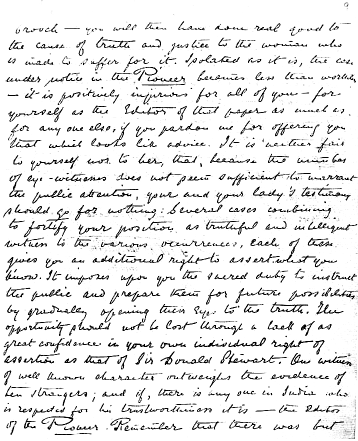 vouch — you will then have done real good to
the cause of truth and justice to the woman who
is made to suffer for it. Isolated as it is, the case
under notice in the Pioneer becomes less than worthless
— it is positively injurious for all of you — for
yourself as the Editor of that paper as much as
for any one else, if you pardon me for offering you
that which looks like advice. It is neither fair
to yourself nor to her, that, because the number
of eye-witnesses does not seem sufficient to warrant
the public attention, your and your lady's testimony
should go for nothing. Several cases combining
to fortify your position as truthful and intelligent
witness to the various occurrences, each of these
gives you an additional right to assert what you
know. It imposes upon you the sacred duty to instruct
the public and prepare them for future possibilities
by gradually opening their eyes to the truth. The
opportunity should not be lost through a lack of as
great confidence in your own individual right of
assertion as that of Sir Donald Stewart. One witness
of well known character outweighs the evidence of
ten strangers; and if, there is any one in India who
is respected for his trustworthiness it is — the Editor
of the Pioneer. Remember that there was but